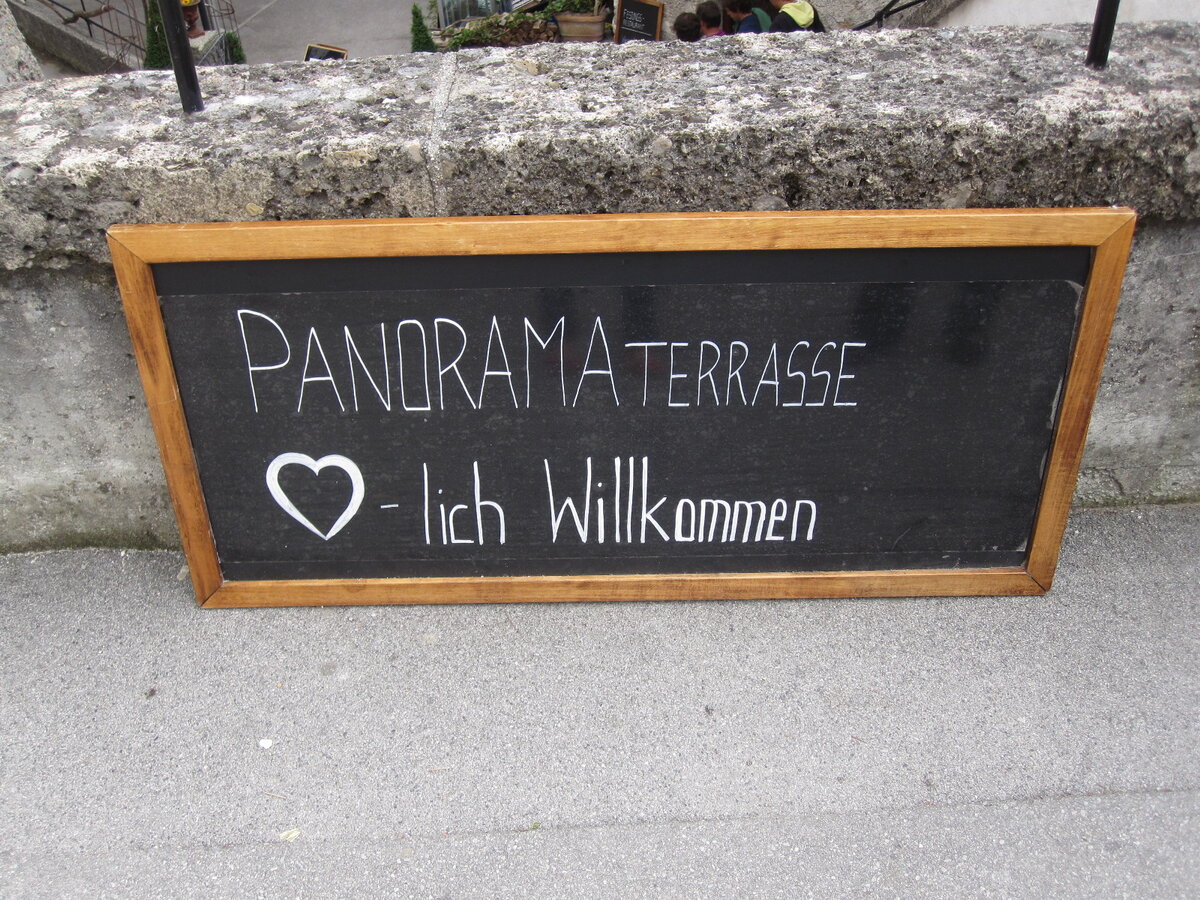 PANORAMATERRASSE
♥-lich Willkommen